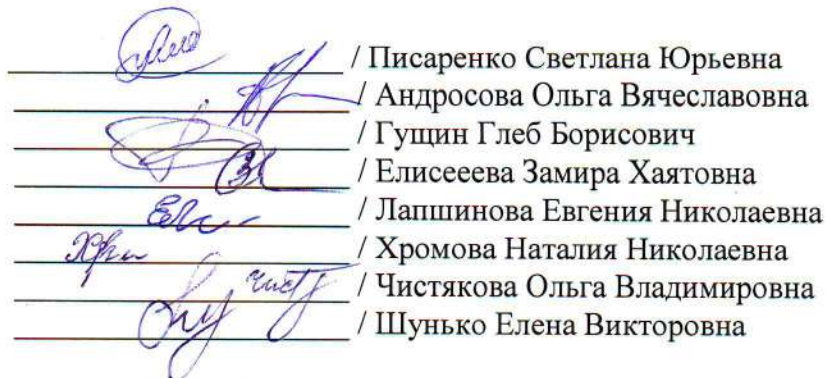 / Писаренко Светлана Юрьевна
/ Андросова Ольга Вячеславовна
/ Гущин Глеб Борисович
/ Елисееева Замира Хаятовна
/ Лапшинова Евгения Николаевна
/ Хромова Наталия Николаевна
/ Чистякова Ольга Владимировна
/ Шунько Елена Викторовна